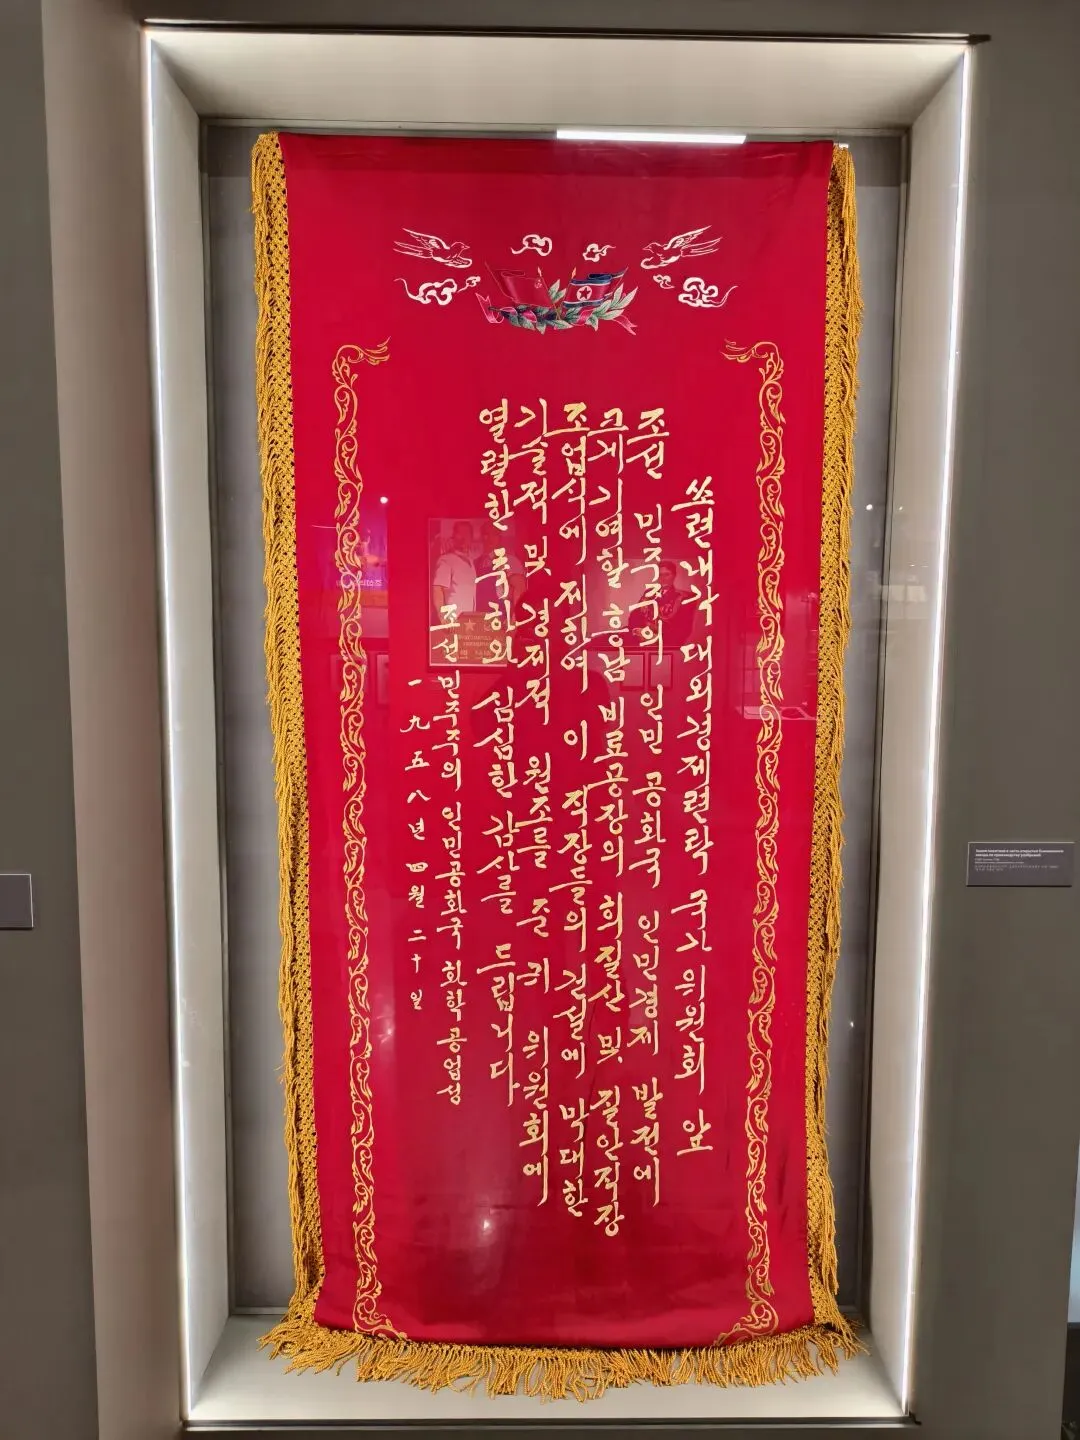 쏘련내각 대외경제련락 국가위원회 앞
조선 민주주의 인민 공화국 인민경제 발전에
크게 기여할 흥남 비료공장의 희질산 및 질안직장
조업식에 제하여 이 직장들의 건설에 막대한
기술적 및 경제적 원조를 준 귀 위원회에
열렬한 축하와 심심한 감사를 드립니다
조선 민주주의 인민공화국 화학공업성
一九五八년 四월 二十일